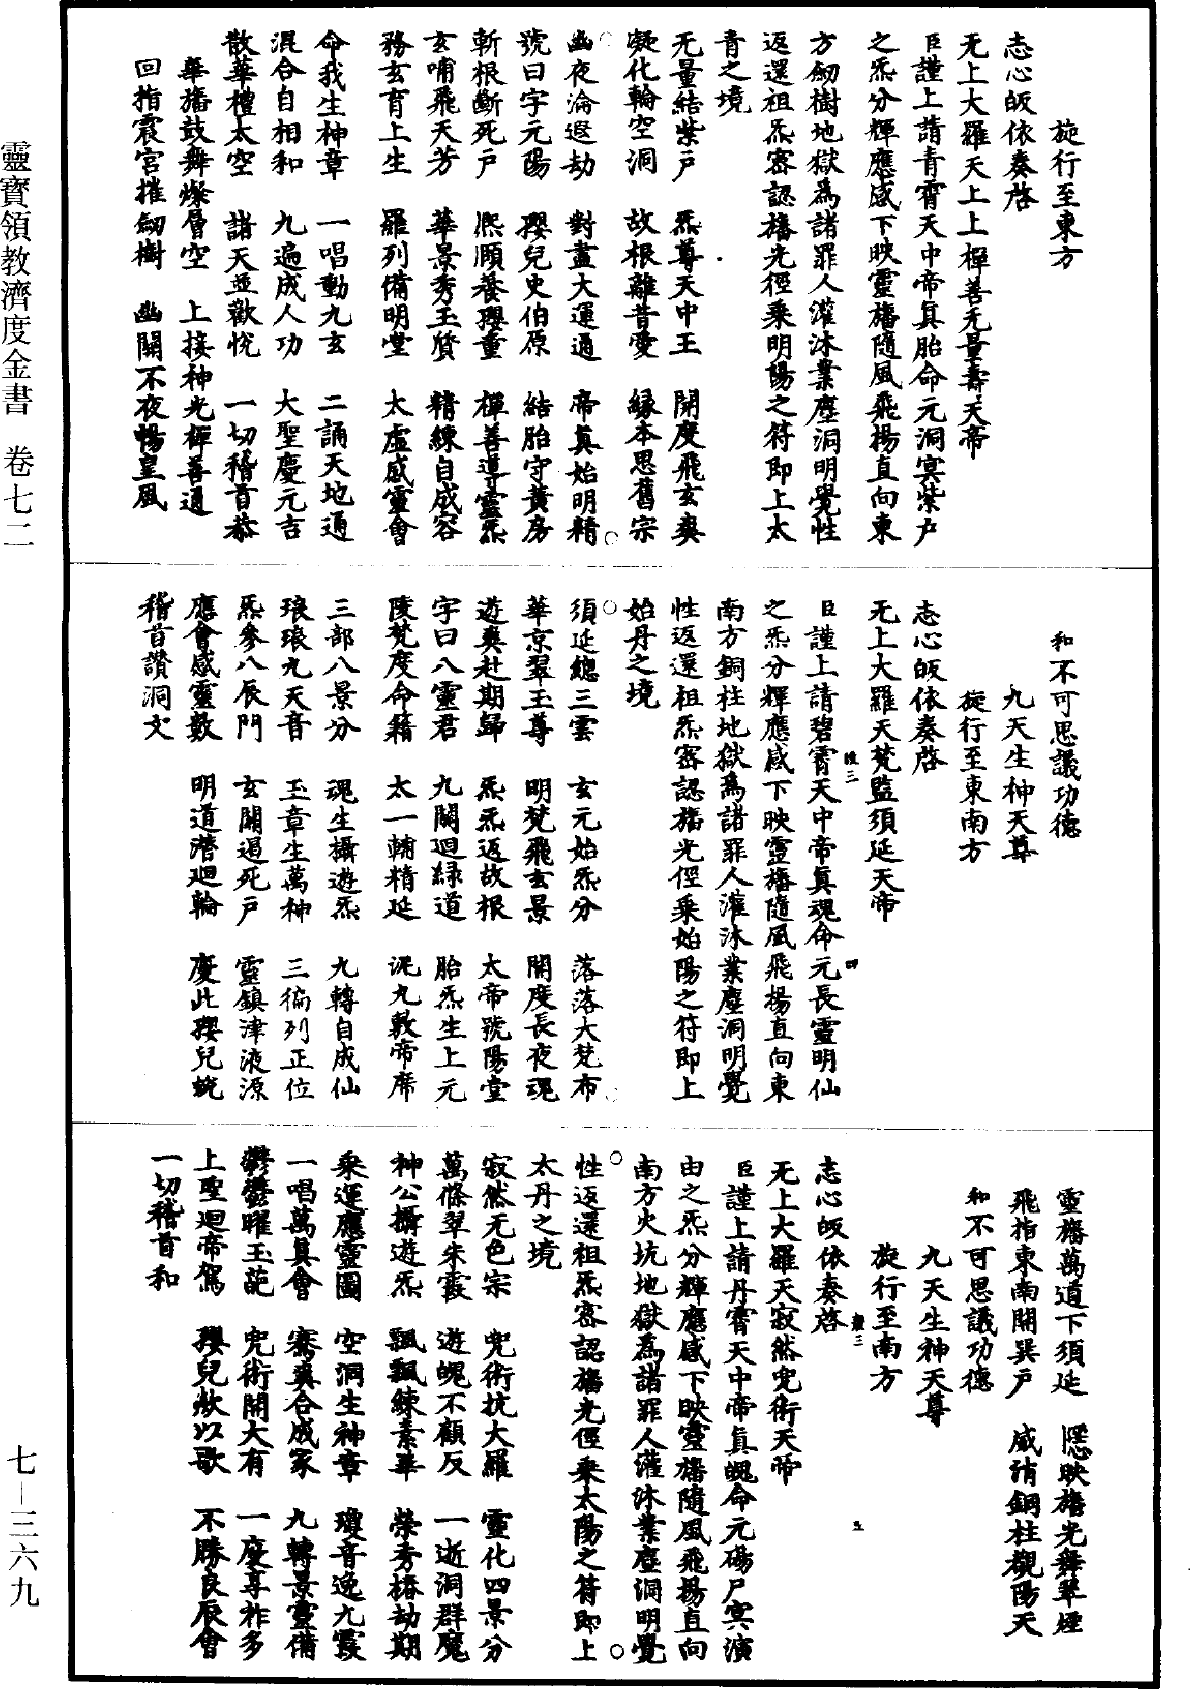 旋行至東方
志心皈依奏啓
无上大羅天上上禪善无量壽天帝
臣謹上請青霄天中帝眞胎命元洞冥紫户
之炁分輝應感下映靈旛隨風飛揚直向東
方劒樹地獄爲諸罪人灌沐業塵洞明覺性
返還祖炁密認旛光徑乘明陽之符即上太
青之境
无量結紫户　炁尊天中王　開度飛玄爽
凝化輪空洞　故根離昔愛　緣本思舊宗
幽夜淪遐劫　對盡大運通　帝眞始明精
號曰字元陽　瓔兒史伯原　結胎守黄房
斬根斷死户　熙頤養瓔童　禪善導靈炁
玄哺飛天芳　華景秀玉質　精練自成容
務玄育上生　羅列備明堂　太虛感靈會
命我生神章　一唱動九玄　二誦天地通
混合自相和　九遍成人功　大聖慶元吉
散華禮太空　諸天並歡悦　一切稽首恭
華旛鼓舞燦層空　上接神光禪善通
回指震宮摧劒樹　幽關不夜暢皇風
和不可思議功德
九天生神天尊
旋行至東南方
志心皈依奏啓
无上大羅天梵監須延天帝
臣謹上請碧霄天中帝眞魂命元長靈明仙
之炁分輝應感下映靈旛隨風飛揚直向東
南方銅柱地獄爲諸罪人灌沐業塵洞明覺
性返還祖炁密認旛光徑乘始陽之符即上
始丹之境
須延總三雲　玄元始炁分　落落大梵布
華京翠玉尊　明梵飛玄景　開度長夜魂
遊爽赴期歸　炁炁返故根　太帝號陽堂
字曰八靈君　九關迴綠道　胎炁生上元
陵梵度命籍　太一輔精延　泥丸敷帝席
三部八景分　魂生攝遊炁　九轉自成仙
琅琅九天音　玉章生萬神　三徧列正位
炁參八辰門　玄關遏死户　靈鎮津液源
應會感靈數　明道潛迴輪　慶此瓔兒蛻
稽首讚洞文
靈旛萬道下須延　隱映旛光舞翠煙
飛指東南開巽户　咸消銅柱覩陽天
和不可思議功德
九天生神天尊
旋行至南方
志心皈依奏啓
无上大羅天寂然兜術天帝
臣謹上請丹霄天中帝眞魄命元碭尸冥演
由之炁分輝應感下映靈旛隨風飛揚直向
南方火坑地獄爲諸罪人灌沐業塵洞明覺
性返還祖炁密認旛光徑乘太陽之符即上
太丹之境
寂然无色宗　兜術抗大羅　靈化四景分
萬條翠朱霞　遊魄不顧反　一逝洞群魔
神公攝遊炁　飄飄練素華　榮秀椿劫期
乘運應靈圖　空洞生神章　瓊音逸九霞
一唱萬眞會　騫爽合成家　九轉景靈備
鬱鬱曜玉葩　兜術開大有　一慶享祚多
上聖迴帝駕　瓔兒歘以歌　不勝良辰會
一切稽首和
靈寶領教濟度金書　卷七二
七—三六九